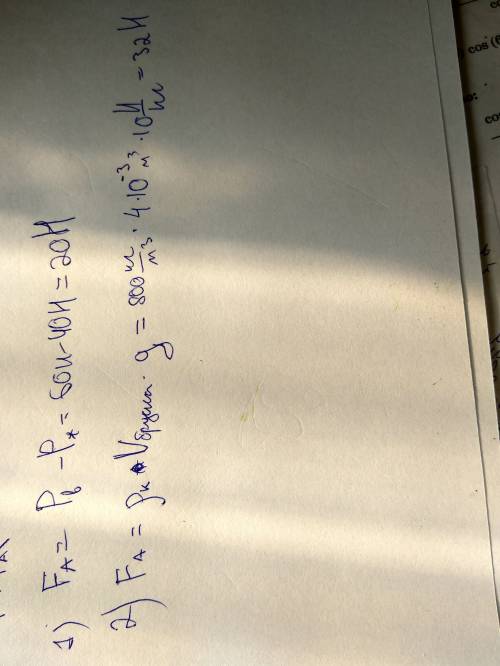 1) F_A = P_в - P_ж = 60Н-40Н = 20Н
2) F_A = ρ_к · V_бруска · g = 800 кг/м³ · 4·10⁻³ м³ · 10 Н/кг = 32Н
cos (6
ю:
cos